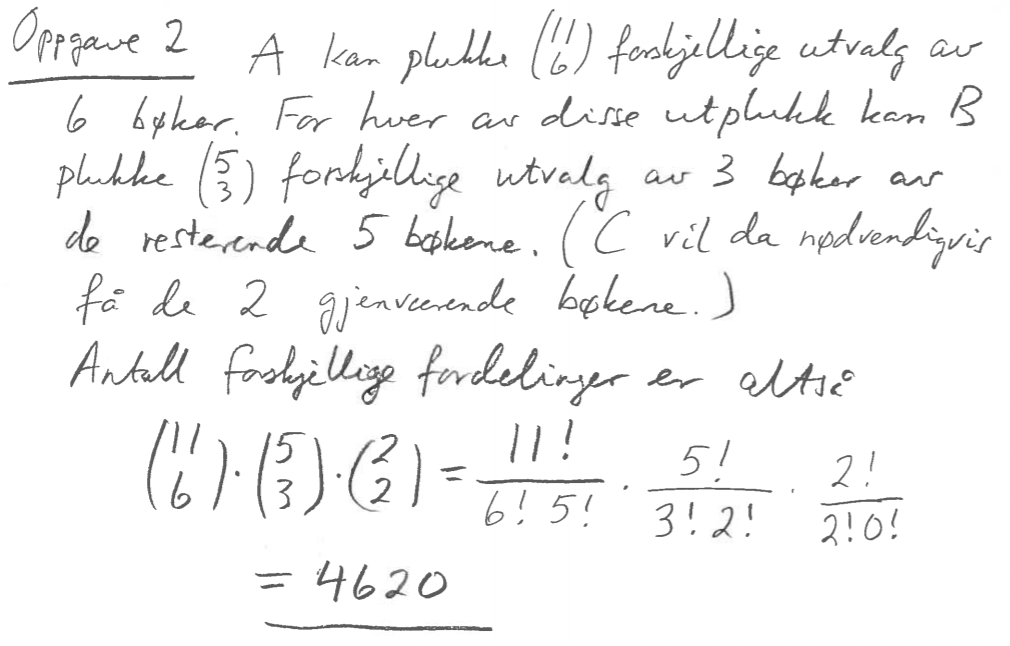 Oppgave 2 A kan plukke (11 6) forskjellige utvalg av
6 bøker. For hver av disse utplukk kan B
plukke (5 3) forskjellige utvalg av 3 bøker av
de resterende 5 bøkene. (C vil da nødvendigvis
få de 2 gjenværende bøkene.)
Antall forskjellige fordelinger er altså
(11 6) · (5 3) · (2 2) = 11! / 6! 5! · 5! / 3! 2! · 2! / 2! 0!
= 4620